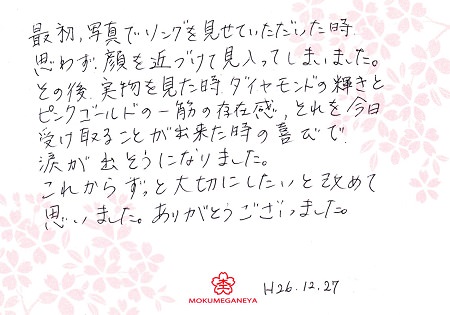 最初、写真でリングを見せていただいた時
思わず、顔を近づけて見入ってしまいました。
その後、実物を見た時、ダイヤモンドの輝きと
ピンクゴールドの一筋の存在感、それを今日
受け取ることが出来た時の喜びで、
涙が出そうになりました。
これからずっと大切にしたいと改めて
思いました。ありがとうございました。
MOKUMEGANEYA
H26.12.27